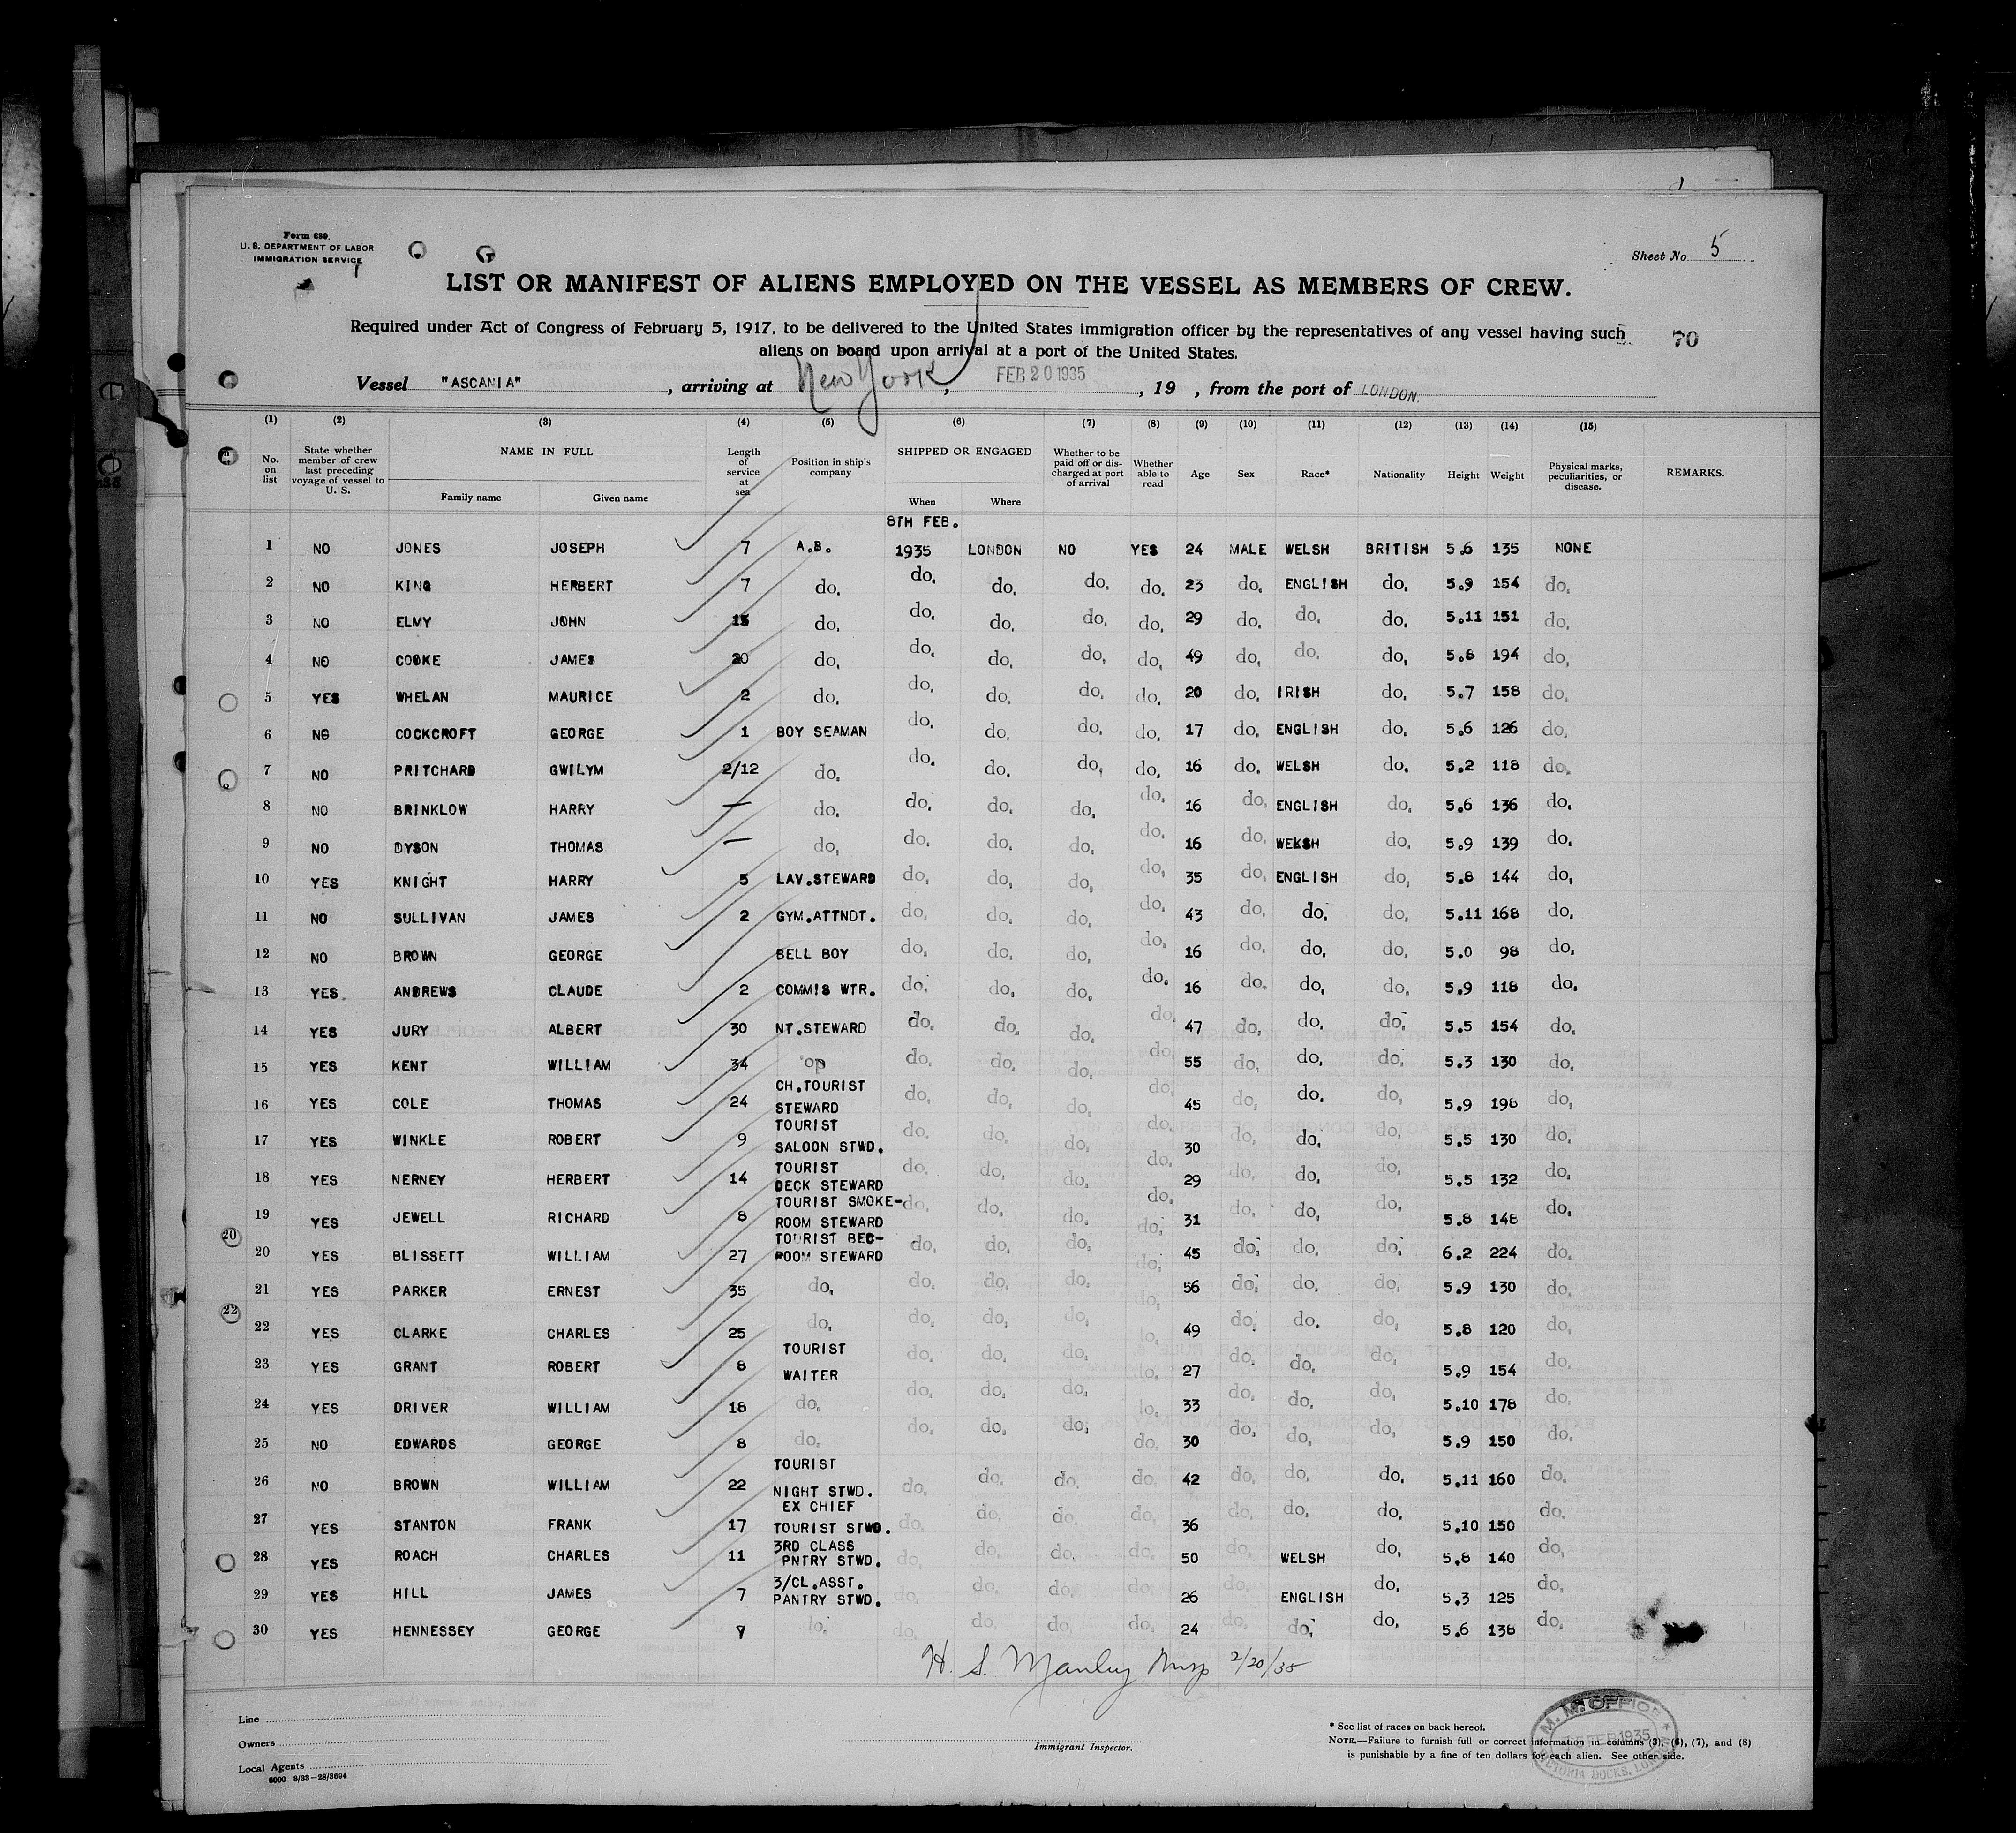 Form 680.
U. S. DEPARTMENT OF LABOR
IMMIGRATION SERVICE
Sheet No. 5
LIST OR MANIFEST OF ALIENS EMPLOYED ON THE VESSEL AS MEMBERS OF CREW.
Required under Act of Congress of February 5, 1917, to be delivered to the United States immigration officer by the representatives of any vessel having such
aliens on board upon arrival at a port of the United States.
70
Vessel "ASCANIA", arriving at New York, FEB 20 1935, 19 , from the port of LONDON.
(1) (2) (3) (4) (5) (6) (7) (8) (9) (10) (11) (12) (13) (14) (15)
No. on list State whether member of crew last preceding voyage of vessel to U. S. NAME IN FULL Length of service at sea Position in ship's company SHIPPED OR ENGAGED Whether to be paid off or discharged at port of arrival Whether able to read Age Sex Race* Nationality Height Weight Physical marks, peculiarities, or disease. REMARKS.
Family name Given name When Where
8TH FEB.
1 NO JONES JOSEPH 7 A.B. 1935 LONDON NO YES 24 MALE WELSH BRITISH 5.6 135 NONE
2 NO KING HERBERT 7 do. do. do. do. do. 23 do. ENGLISH do. 5.9 154 do.
3 NO ELMY JOHN do. do. do. do. do. 29 do. do. do. 5.11 151 do.
4 NO COOKE JAMES 20 do. do. do. do. do. 49 do. do. do. 5.8 194 do.
5 YES WHELAN MAURICE 2 do. do. do. do. do. 20 do. IRISH do. 5.7 158 do.
6 NO COCKCROFT GEORGE 1 BOY SEAMAN do. do. do. do. 17 do. ENGLISH do. 5.6 126 do.
7 NO PRITCHARD GWILYM 2/12 do. do. do. do. do. 16 do. WELSH do. 5.2 118 do.
8 NO BRINKLOW HARRY — do. do. do. do. do. 16 do. ENGLISH do. 5.6 136 do.
9 NO DYSON THOMAS — do. do. do. do. do. 16 do. WELSH do. 5.9 139 do.
10 YES KNIGHT HARRY 5 LAV.STEWARD do. do. do. do. 35 do. ENGLISH do. 5.8 144 do.
11 NO SULLIVAN JAMES 2 GYM.ATTNDT. do. do. do. do. 43 do. do. do. 5.11 168 do.
12 NO BROWN GEORGE BELL BOY do. do. do. do. 16 do. do. do. 5.0 98 do.
13 YES. ANDREWS CLAUDE 2 COMMIS WTR. do. do. do. do. 16 do. do. do. 5.9 118 do.
14 YES JURY ALBERT 30 NT.STEWARD do. do. do. do. 47 do. do. do. 5.5 154 do.
15 YES KENT WILLIAM 34 do do. do. do. do. 55 do. do. do. 5.3 130 do.
CH.TOURIST
16 YES COLE THOMAS 24 STEWARD do. do. do. do. 45 do. do. do. 5.9 198 do.
TOURIST
17 YES WINKLE ROBERT 9 SALOON STWD. do. do. do. do. 30 do. do. do. 5.5 130 do.
TOURIST
18 YES NERNEY HERBERT 14 DECK STEWARD do. do. do. do. 29 do. do. do. 5.5 132 do.
TOURIST SMOKE-
19 YES JEWELL RICHARD 8 ROOM STEWARD do. do. do. do. 31 do. do. do. 5.8 148 do.
TOURIST BED-
20 YES BLISSETT WILLIAM 27 ROOM STEWARD do. do. do. do. 45 do. do. do. 6.2 224 do.
21 YES PARKER ERNEST 35 do. do. do. do. do. 56 do. do. do. 5.9 130 do.
22 YES CLARKE CHARLES 25 do. do. do. do. do. 49 do. do. do. 5.8 120 do.
TOURIST
23 YES GRANT ROBERT 8 WAITER do. do. do. do. 27 do. do. do. 5.9 154 do.
24 YES DRIVER WILLIAM 18 do. do. do. do. do. 33 do. do. do. 5.10 178 do.
25 NO EDWARDS GEORGE 8 do. do. do. do. do. 30 do. do. do. 5.9 150 do.
TOURIST
26 NO BROWN WILLIAM 22 NIGHT STWD. do. do. do. do. 42 do. do. do. 5.11 160 do.
EX CHIEF
27 YES STANTON FRANK 17 TOURIST STWD. do. do. do. do. 36 do. do. do. 5.10 150 do.
3RD CLASS
28 YES ROACH CHARLES 11 PNTRY STWD. do. do. do. do. 50 do. WELSH do. 5.8 140 do.
3/CL.ASST.
29 YES HILL JAMES 7 PANTRY STWD. do. do. do. do. 26 do. ENGLISH do. 5.3 125 do.
30 YES HENNESSEY GEORGE do. do. do. do. do. 24 do. do. do. 5.6 138 do.
20
22
H. S. Manley Insp 2/20/35
Line
Owners
Local Agents
6000 8/33—28/3694
Immigrant Inspector.
* See list of races on back hereof.
NOTE.—Failure to furnish full or correct information in columns (3), (6), (7), and (8)
is punishable by a fine of ten dollars for each alien. See other side.
M. M. OFFICE
FEB 1935
VICTORIA DOCKS, LONDON